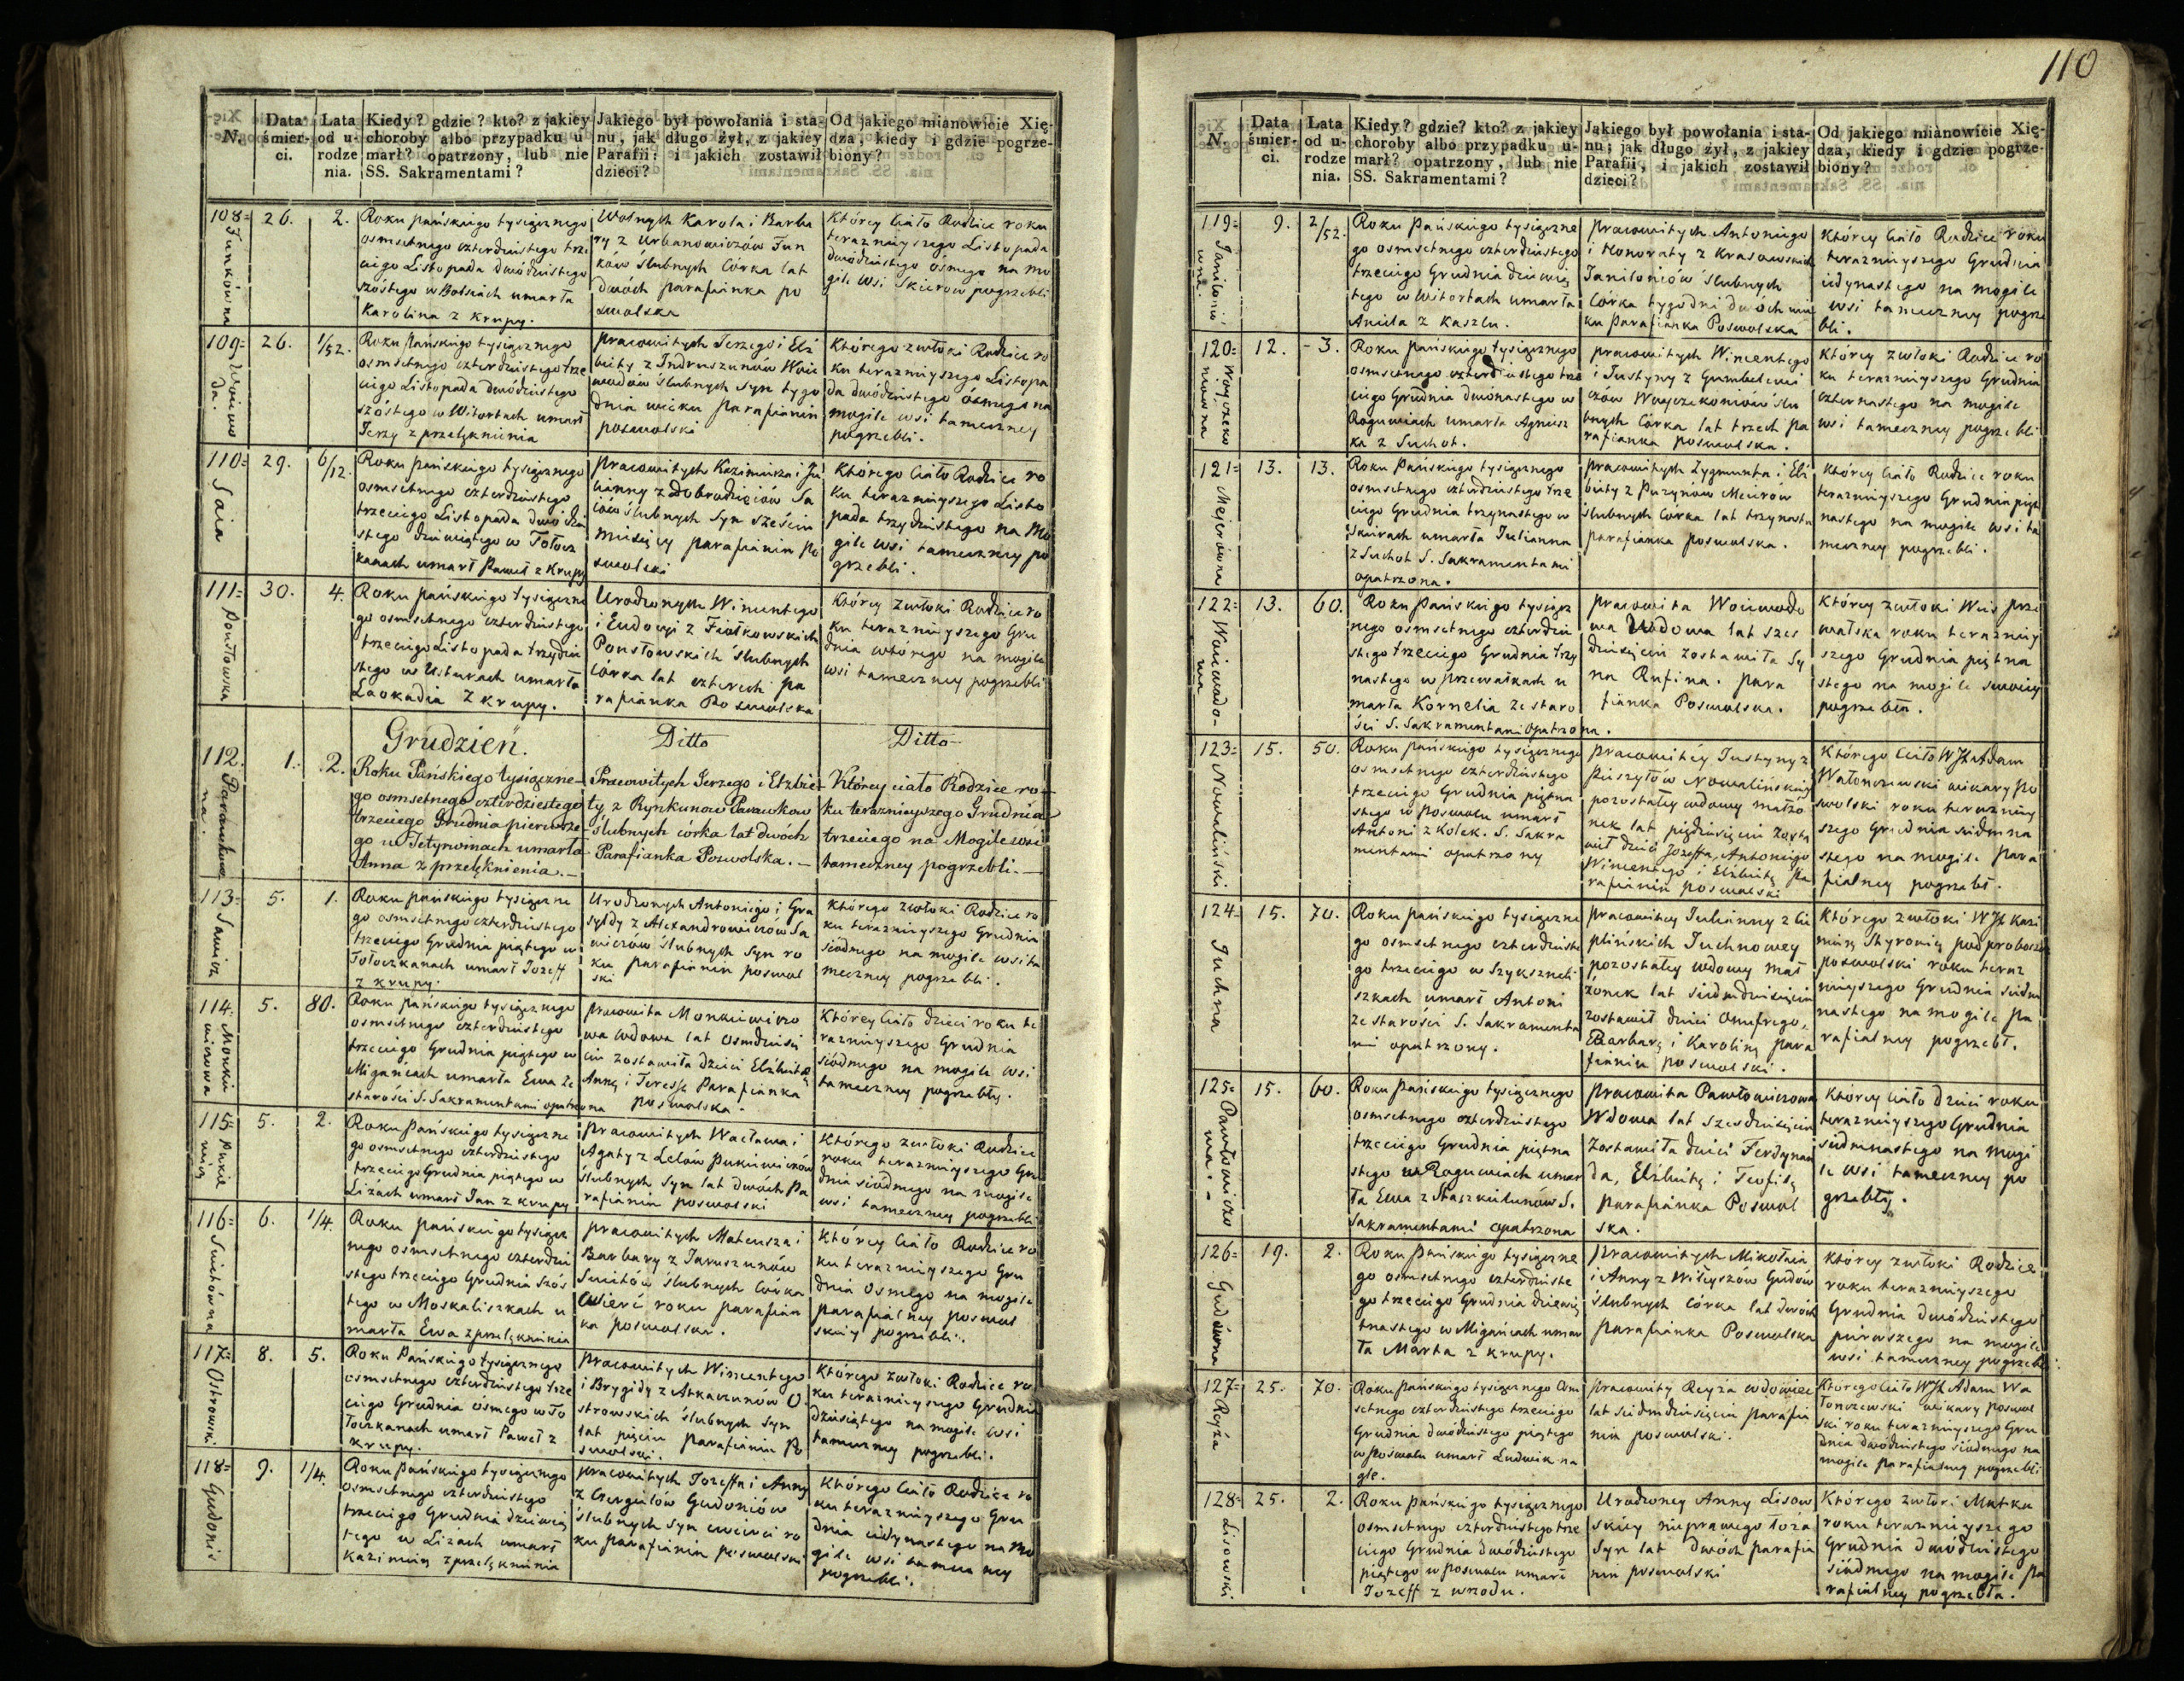 110
N.
Data śmierci.
Lata od urodzenia.
Kiedy? gdzie? kto? z jakiey choroby albo przypadku umarł? opatrzony, lub nie SS. Sakramentami?
Jakiego był powołania i stanu, jak długo żył, z jakiey Parafii; i jakich zostawił dzieci?
Od jakiego mianowicie Xiędza, kiedy i gdzie pogrzebiony?
108
Junkówna
26.
2.
Roku pańskiego tysiącznego
osmsetnego czterdziestego trze
ciego Listopada dwódziestego
szóstego w Bolsiach umarła
Karolina z krupy.
Wolnych Karola i Barba
ry z Urbanowiczów Jun
ków ślubnych Córka lat
dwóch parafianka po
swolska
Którey Ciało Rodzice roku
teraznieyszego Listopada
dwódziestego ósmego na mo
gile wsi Skierów pogrzebli
109
26.
1/52.
Roku Pańskiego tysiącznego
osmsetnego czterdziestego trze
ciego Listopada dwódziestego
szóstego w Witortach umarł
Jerzy z przelęknienia
pracowitych Jerzego i Elż
biety z Indruszunów Woie
wodów ślubnych Syn tygo
dnia wieku parafianin
poswolski
Którego zwłoki Rodzice ro
ku teraznieyszego Listopa
da dwódziestego ósmego na
mogile wsi tameczney
pogrzebli.
110
Saia
29.
6/12
Roku pańskiego tysiącznego
osmsetnego czterdziestego
trzeciego Listopada dwódzie
stego dziewiątego w Tołocz
kanach umarł Paweł z Krupy
pracowitych Kazimierza i Ju
lianny z Dobrodzieiów Sa
iów ślubnych Syn sześciu
miesięcy parafianin Po
swolski
Którego Ciało Rodzice ro
ku teraznieyszego Listo
pada trzydziestego na Mo
gile wsi tameczney po
grzebli.
111
Ponsłowska
30.
4.
Roku pańskiego tysiączne
go osmsetnego czterdziestego
trzeciego Listopada trzydzie
stego w Usturach umarła
Leokadia z krupy.
Urodzonych Wincentego
i Eudoxji z Fiołkowskich
Ponsłowskich ślubnych
córka lat czterech pa
rafianka Poswolska
Którey zwłoki Rodzice ro
ku teraznieyszego Gru
dnia wtórego na mogile
wsi tameczney pogrzebli
Grudzień.
Ditto
Ditto
112.
1.
2.
Roku Pańskiego tysiączne-
go osmsetnego czterdziestego
trzeciego Grudnia pierwsze-
go w Tetyrwinach umarła
Anna z przelęknienia.
Pracowitych Jerzego i Elżbie-
ty z Rynkunow Parankow
ślubnych córka lat dwóch
Parafianka Poswolska.
Którey ciało Rodzice ro-
ku teraznieyszego Grudnia
trzeciego na Mogile wsi
tameczney pogrzebli.
113
Sawicz
5.
1.
Roku pańskiego tysiączne
go osmsetnego czterdziestego
trzeciego Grudnia piątego w
Tołoczkanach umarł Jozeff
z krupy.
Urodzonych Antoniego i Gra
syldy z Alexandrowiczów Sa
wiczów ślubnych Syn ro
ku parafianin poswol
ski
Którego zwłoki Rodzice ro
ku teraznieyszego Grudnia
siódmego na mogile wsi ta
meczney pogrzebli.
114
Monkie
wiczowa
5.
80.
Roku pańskiego tysiącznego
osmsetnego czterdziestego
trzeciego Grudnia piątego w
Migańcach umarła Ewa ze
starości S. Sakramentami opatrzona
pracowita Monkiewiczo
wa wdowa lat osmdziesię
ciu zostawiła dzieci Elżbietę
Annę i Teressę Parafianka
poswolska.
Którey Ciało dzieci roku te
raznieyszego Grudnia
siódmego na mogile wsi
tameczney pogrzebły.
115
Pukie
wicz
5.
2.
Roku Pańskiego tysiączne
go osmsetnego czterdziestego
trzeciego Grudnia piątego w
Liżach umarł Jan z krupy
pracowitych Wacława i
Agaty z Lelów Pukiewiczów
ślubnych Syn lat dwóch Pa
rafianin poswolski
Którego zwłoki Rodzice
roku teraznieyszego Gru
dnia siódmego na mogile
wsi tameczney pogrzebli
116
Switówna
6.
1/4.
Roku pańskiego tysiącz
nego osmsetnego czterdzie
stego trzeciego Grudnia szós
tego w Moskaliszkach u
marła Ewa z przelęknienia
pracowitych Mateusza i
Barbary z Jaruszunów
Switów ślubnych Córka
ćwierć roku parafian
ka poswolska.
Którey Ciało Rodzice ro
ku teraznieyszego Gru
dnia osmego na mogile
parafialney poswol
skiey pogrzebli.
117
Ostrowski
8.
5.
Roku Pańskiego tysiącznego
osmsetnego czterdziestego trze
ciego Grudnia ósmego w To
łoczkanach umarł Paweł z
krupy.
pracowitych Wincentego
i Brygidy z Atkaczunów O
strowskich ślubnych Syn
lat pięciu parafianin Po
swolski.
Którego zwłoki Rodzice ro
ku teraznieyszego Grudnia
dziesiątego na mogile wsi
tameczney pogrzebli.
118
Gudonis
9.
1/4.
Roku Pańskiego tysiącznego
osmsetnego czterdziestego
trzeciego Grudnia dziewią
tego w Liżach umarł
Kazimierz z przelęknienia
pracowitych Jozeffa i Anny
z Giergielów Gudoniów
ślubnych Syn ćwierci ro
ku parafianin poswolski
Którego Ciało Rodzice ro
ku teraznieyszego Gru
dnia iedynastego na mo
gile wsi tameczney
pogrzebli.
N.
Data śmierci.
Lata od urodzenia.
Kiedy? gdzie? kto? z jakiey choroby albo przypadku umarł? opatrzony, lub nie SS. Sakramentami?
Jakiego był powołania i stanu; jak długo żył, z jakiey Parafii, i jakich zostawił dzieci?
Od jakiego mianowicie Xiędza, kiedy i gdzie pogrzebiony?
119
9.
2/52.
Roku Pańskiego tysiączne
go osmsetnego czterdziestego
trzeciego Grudnia dziewią
tego w Witortach umarła
Aniela z Kaszlu.
pracowitych Antoniego
i Honoraty z Krasowskich
Janiloniów ślubnych
Córka tygodni dwóch wie
ku Parafianka Poswolska
Którey Ciało Rodzice roku
teraznieyszego Grudnia
iedynastego na mogile
wsi tameczney pogrze
bli.
120
12.
3.
Roku Pańskiego tysiącznego
osmsetnego czterdziestego trze
ciego Grudnia dwónastego w
Roguwiach umarła Agniesz
ka z Suchot.
pracowitych Wincentego
i Justyny z Gumbelewi
czów Woyczekoniów ślu
bnych Córka lat trzech pa
rafianka poswolska.
Którey zwłoki Rodzice ro
ku teraznieyszego Grudnia
czternastego na mogile
wsi tameczney pogrzebli
121
Mejerówna
13.
13.
Roku Pańskiego tysiącznego
osmsetnego czterdziestego trze
ciego Grudnia trzynastego w
Skierach umarła Julianna
z Suchot S. Sakramentami
opatrzona.
pracowitych Zygmunta i Elż
biety z Puzynów Meierów
ślubnych Córka lat trzynastu
parafianka poswolska.
Którey Ciało Rodzice roku
teraznieyszego Grudnia pięt
nastego na mogile wsi ta
meczney pogrzebli.
122
Woiewodo-
wa
13.
60.
Roku Pańskiego tysiącz
nego osmsetnego czterdzie
stego trzeciego Grudnia trzy
nastego w przewałkach u
marła Kornelia ze staro
ści S. Sakramentami opatrzona.
pracowita Woiewodo
wa Wdowa lat szes
dziesięciu zostawiła Sy
na Rufina. para
fianka Poswolska.
Którey zwłoki Wieś prze
walska roku terazniey
szego Grudnia piętna
stego na mogile swoiey
pogrzebła.
123
Nowaliński
15.
50.
Roku pańskiego tysiącznego
osmsetnego czterdziestego
trzeciego Grudnia piętna
stego w poswolu umarł
Antoni z Kolek. S. Sakra
mentami opatrzony
pracowitey Justyny z
Puszytów Nowalińskiey
pozostałey wdowy małżo
nek lat pięćdziesięciu zosta
wił dzieci Jozeffa, Antoniego
Wincentego i Elżbietę Pa
rafianin poswolski
Którego Ciało WJX Adam
Wałonczewski wikary po
swolski roku terazniey
szego Grudnia siedmna
stego na mogile para
fialney pogrzebł.
124
Juchna
15.
70.
Roku pańskiego tysiączne
go osmsetnego czterdzieste
go trzeciego w Szyksznieli
szkach umarł Antoni
ze starości S. Sakramenta
mi opatrzony.
pracowitey Julianny z Cie
plińskich Juchnowey
pozostałey wdowy mał
żonek lat siedmdziesięciu
zostawił dzieci Onufrego,
Barbarę i Karolinę para
fianin poswolski.
Którego zwłoki WJX Kazi
mierz Styrowicz podproboszcz
poswolski roku teraz
nieyszego Grudnia siedm
nastego na mogile pa
rafialney pogrzebł.
125
Pawłowiczo
wa.
15.
60.
Roku Pańskiego tysiącznego
osmsetnego czterdziestego
trzeciego Grudnia piętna
stego w Roguwiach umar
ła Ewa z Staszkielunów S.
Sakramentami opatrzona
pracowita Pawłowiczowa
Wdowa lat szesdziesięciu
zostawiła dzieci Ferdynan
da, Elżbietę i Teofilę
parafianka Poswol
ska.
Którey Ciało dzieci roku
teraznieyszego Grudnia
siedmnastego na mogi
le wsi tameczney po
grzebły.
126
Gudówna
19.
2.
Roku Pańskiego tysiączne
go osmsetnego czterdzieste
go trzeciego Grudnia dziewię
tnastego w Migańcach umar
ła Marta z krupy.
pracowitych Mikołaia
i Anny z Witeyszów Gudów
ślubnych Córka lat dwóch
parafianka Poswolska
Którey zwłoki Rodzice
roku teraznieyszego
Grudnia dwódziestego
pierwszego na mogile
wsi tameczney pogrzebli.
127
Reyża
25.
70.
Roku Pańskiego tysiącznego osm
setnego czterdziestego trzeciego
Grudnia dwódziestego piątego
w Poswolu umarł Ludwik na
gle.
pracowity Reyża wdowiec
lat siedmdziesięciu parafia
nin poswolski.
Którego Ciało WJX Adam Wa
łonczewski wikary poswol
ski roku teraznieyszego Gru
dnia dwódziestego siódmego na
mogile parafialney pogrzebli
128
Lisowski
25.
2.
Roku pańskiego tysiącznego
osmsetnego czterdziestego trze
ciego Grudnia dwódziestego
piątego w poswolu umarł
Jozeff z wrzodu.
Urodzoney Anny Lisow
skiey nieprawego łoża
Syn lat dwóch parafia
nin poswolski
Którego zwłoki Matka
roku teraznieyszego
Grudnia dwódziestego
siódmego na mogile pa
rafialney pogrzebła.